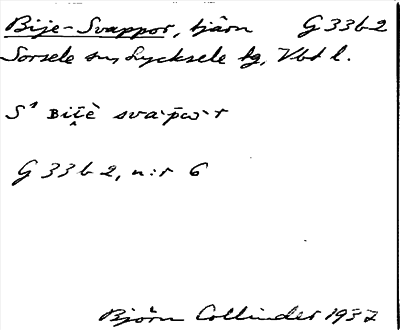 Bije-Svappor, tjärn G 33 b 2
Sorsele sn, Lycksele lg, Vbt l.
svar
G 33 b 2, n:r 6
Björn Collinder 1937